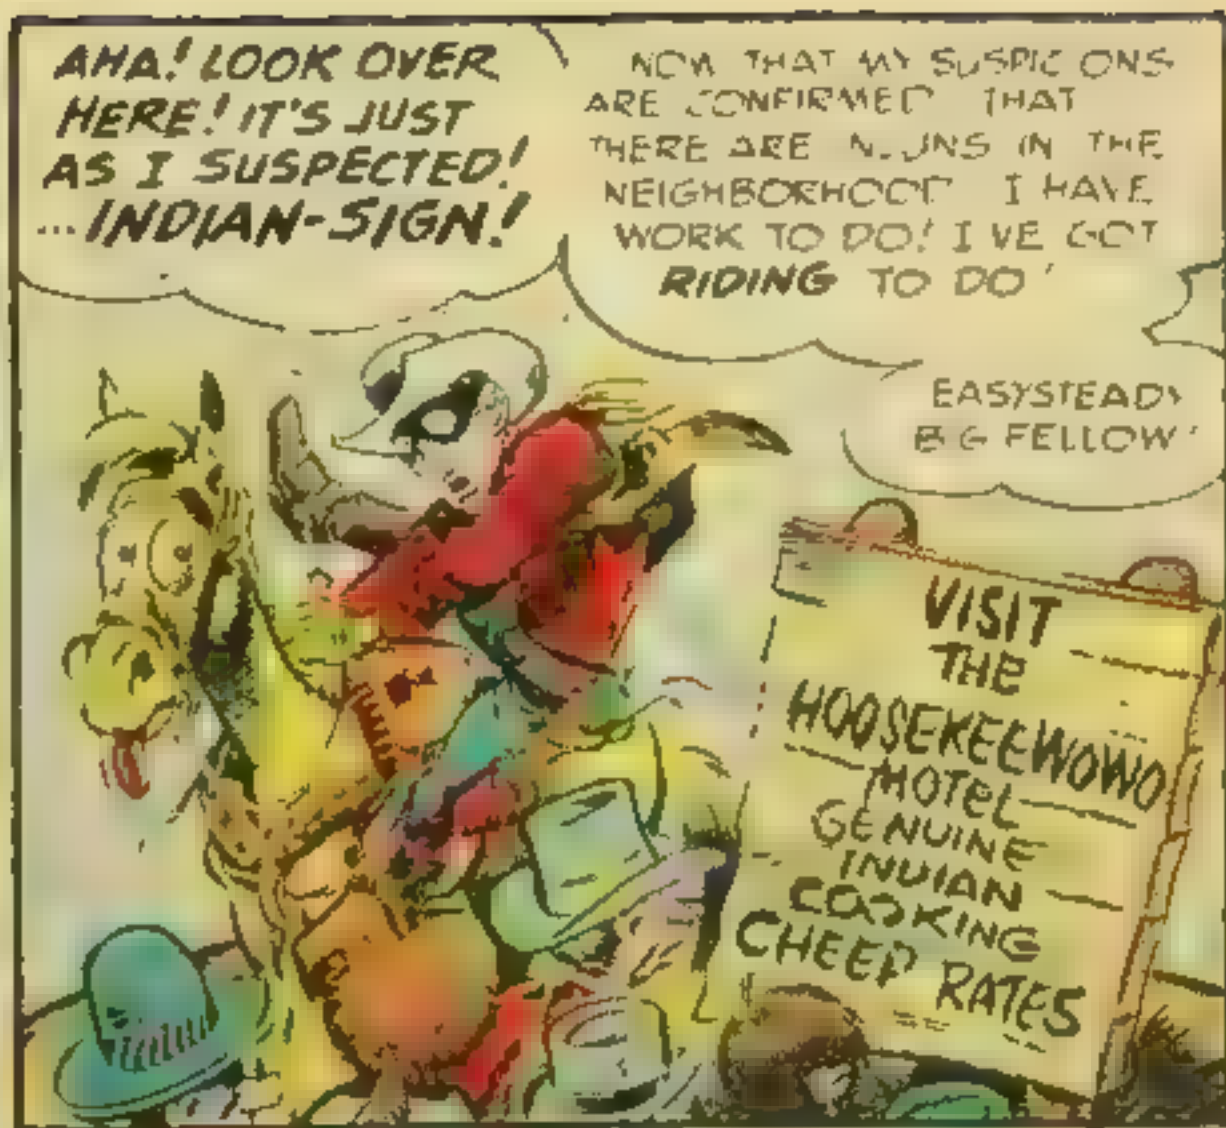 AHA! LOOK OVER
HERE! IT'S JUST
AS I SUSPECTED!
...INDIAN-SIGN!
NOW THAT MY SUSPICIONS
ARE CONFIRMED THAT
THERE ARE IN THE
NEIGHBORHOOD I HAVE
WORK TO DO! I'VE GOT
RIDING TO DO!
EASY STEADY
BIG FELLOW!
VISIT
THE
HOOSEKEEWOWO
MOTEL
GENUINE
INDIAN
COOKING
CHEEP RATES